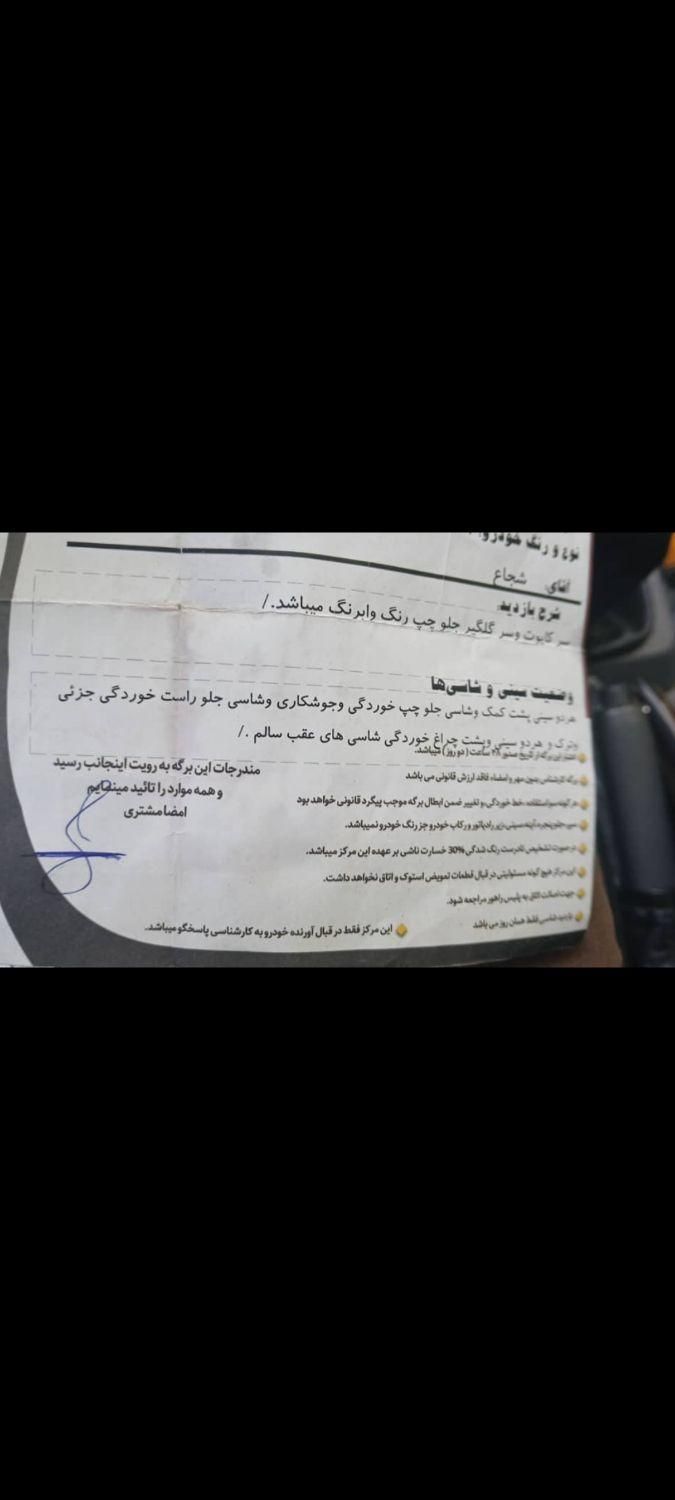 نوع و رنگ خودرو
آقای شجاع
شرح بازدید:
سر کاپوت وسر گلگیر جلو چپ رنگ وابرنگ میباشد./
وضعیت سینی و شاسی‌ها
هردو سینی پشت کمک وشاسی جلو چپ خوردگی وجوشکاری وشاسی جلو راست خوردگی جزئی
وترک و هردو سینی وپشت چراغ خوردگی شاسی های عقب سالم ./
اعتبار این برگه از تاریخ صدور ۴۸ ساعت ( دو روز ) میباشد.
برگه کارشناسی بدون مهر و امضاء فاقد ارزش قانونی می باشد
هر گونه سوءاستفاده، خط خوردگی و تغییر ضمن ابطال برگه موجب پیگرد قانونی خواهد بود
سینی جلو پنجره، آینه، سینی زیر رادیاتور و رکاب خودرو جز رنگ خودرو نمیباشد.
در صورت تشخیص نادرست رنگ شدگی 30% خسارت ناشی بر عهده این مرکز میباشد.
این مرکز هیچ گونه مسئولیتی در قبال قطعات تعویض استوک و اتاق نخواهد داشت.
جهت اصالت اتاق به پلیس راهور مراجعه شود.
بازدید شاسی فقط همان روز می باشد
این مرکز فقط در قبال آورنده خودرو به کارشناسی پاسخگو میباشد.
مندرجات این برگه به رویت اینجانب رسید
و همه موارد را تائید مینمایم
امضا مشتری